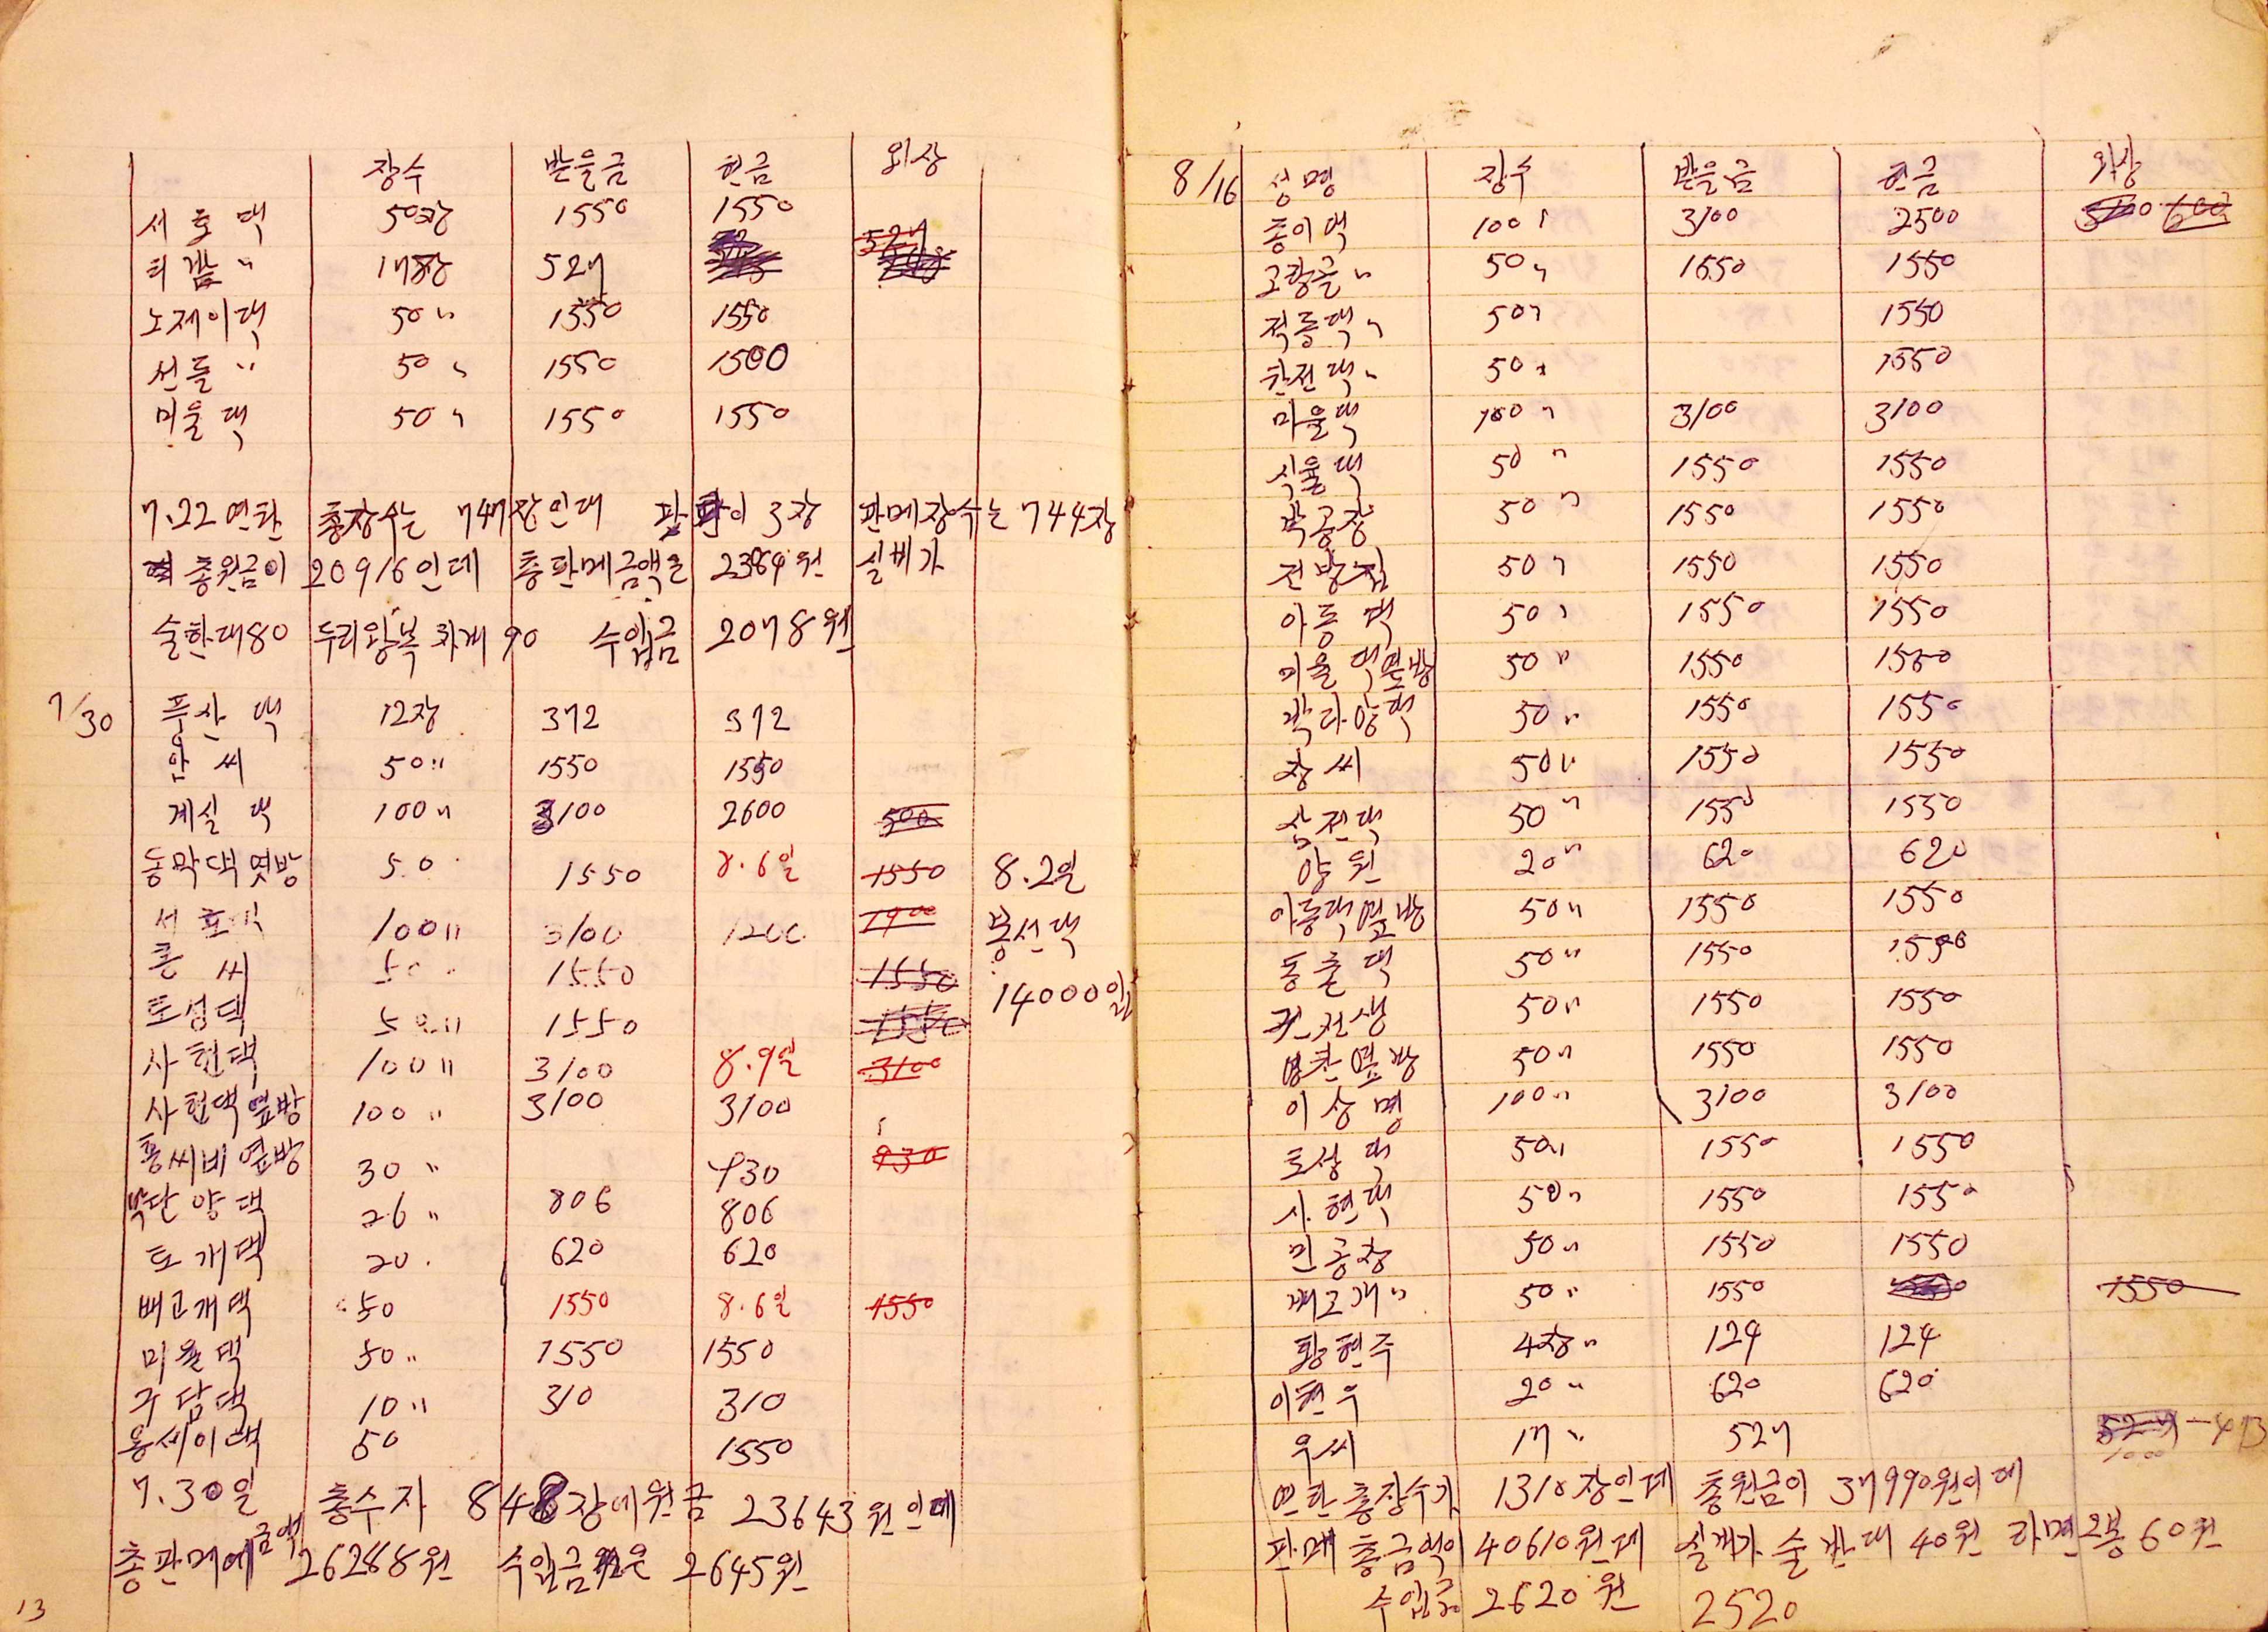 장수 받을금 현금 외상
서호댁 50장 1550 1550
티검 〃 17장 527 527
노제이댁 50〃 1550 1550
선돌 〃 50〃 1550 1500
미울댁 50〃 1550 1550
7.22 연탄 총장수는 747장인대 파손이 3장 판메장수는 744장
총원금이 20916인데 총판메금액은 23064원 실비가
술한대80 두리왕복 차게 90 수입금 2078원
7/30 푸산댁 12장 372 372
안씨 50〃 1550 1550
계실댁 100〃 3100 2600 500
동막댁옆방 50 1550 8.6일 1550 8.2일
서호댁 100〃 3100 1200 1900 봉선댁
씨 50 〃 1550 1550
토성댁 50〃 1550 1550 14000일
사현댁 100〃 3100 8.9일 3100
사현댁옆방 100〃 3100 3100
홍씨비옆방 30〃 930 930
단양댁 26〃 806 806
토개댁 20. 620 620
배고개댁 50 1550 8.6일 1550
미울댁 50〃 1550 1550
구담댁 10〃 310 310
용세이댁 50 1550
7.30일 총수자 848장에원금 23643원인데
총판메에금액 26288원 수입금은 2645원
13
8/16 성명 장수 받을금 현금 외상
종이댁 100〃 3100 2500 600
고랑골〃 50〃 1550 1550
적동댁〃 50〃 1550
한전댁〃 50〃 1550
미울댁 100〃 3100 3100
식율댁 50〃 1550 1550
박공장 50〃 1550 1550
전방집 50〃 1550 1550
아동댁 50〃 1550 1550
미울댁옆방 50〃 1550 1550
각다양댁 50〃 1550 1550
장씨 50〃 1550 1550
삼전댁 50〃 1550 1550
양원 20〃 620 620
아동댁옆방 50〃 1550 1550
동촐댁 50〃 1550 1550
권선생 50〃 1550 1550
영찬옆방 50〃 1550 1550
이상명 100〃 3100 3100
토성댁 50〃 1550 1550
사현댁 50〃 1550 1550
민공장 50〃 1550 1550
배고개〃 50〃 1550 1550
황현주 4장〃 124 124
이현우 20〃 620 620
우씨 17〃 527 527
연탄총장수가 1310장인데 총원금이 37990원이데
판매총금액이 40610원데 실게가 술한대 40원 라면2봉 60원
수입금 2620원 2520